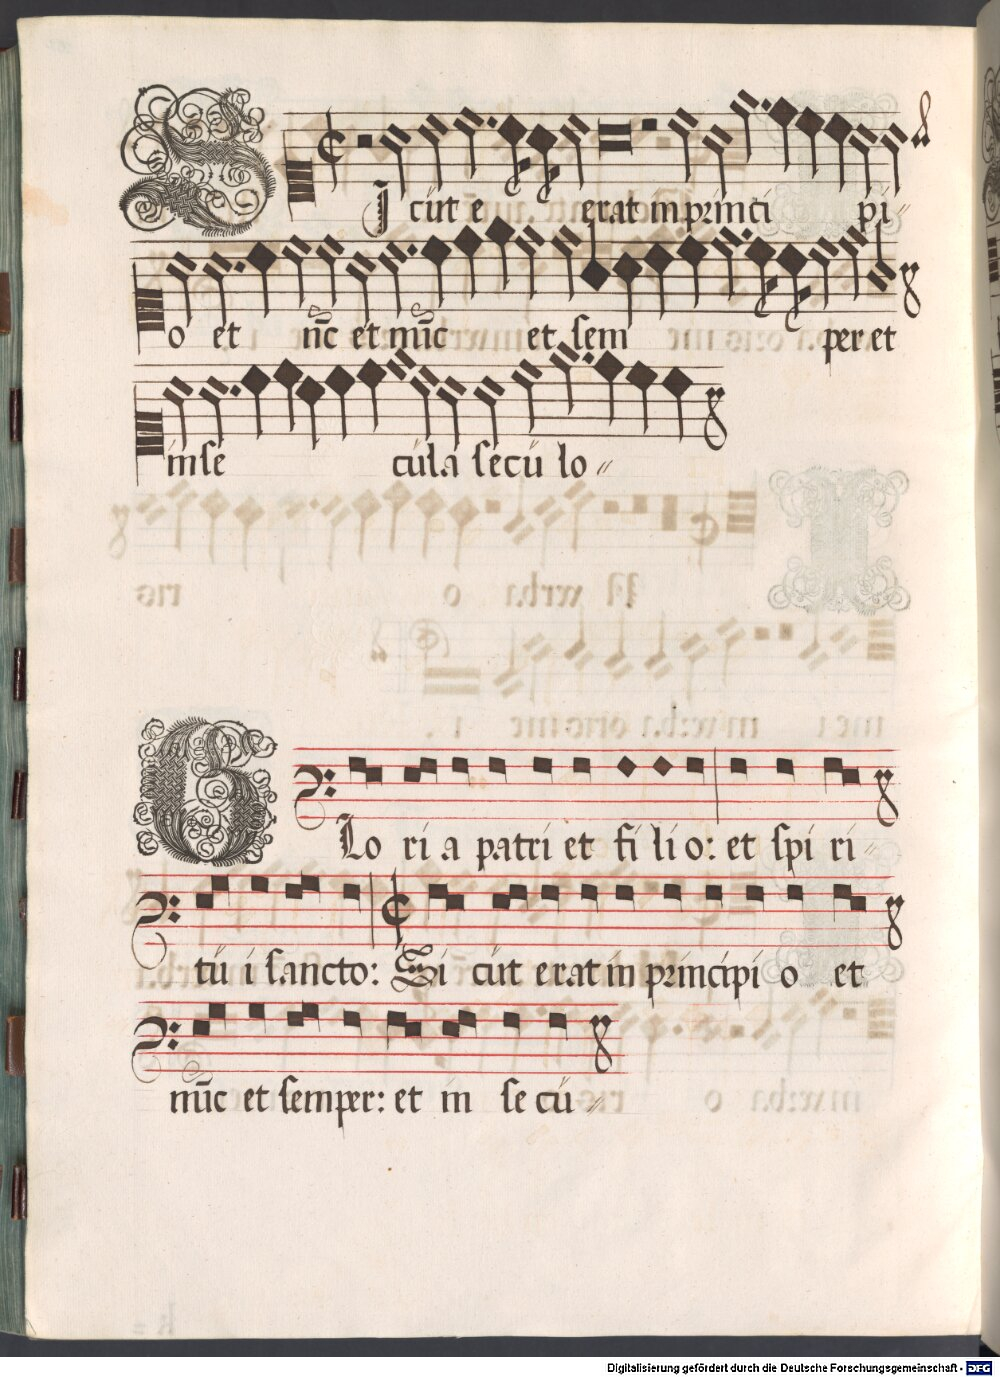 Sicut e erat in principi
o et nūc et nūc et sem per et
in se cula secu lo
Glo ri a patri et fi li o: et spi ri
tu i sancto: Si cut erat in principi o et
nūc et semper: et in se cu
Digitalisierung gefördert durch die Deutsche Forschungsgemeinschaft - DFG